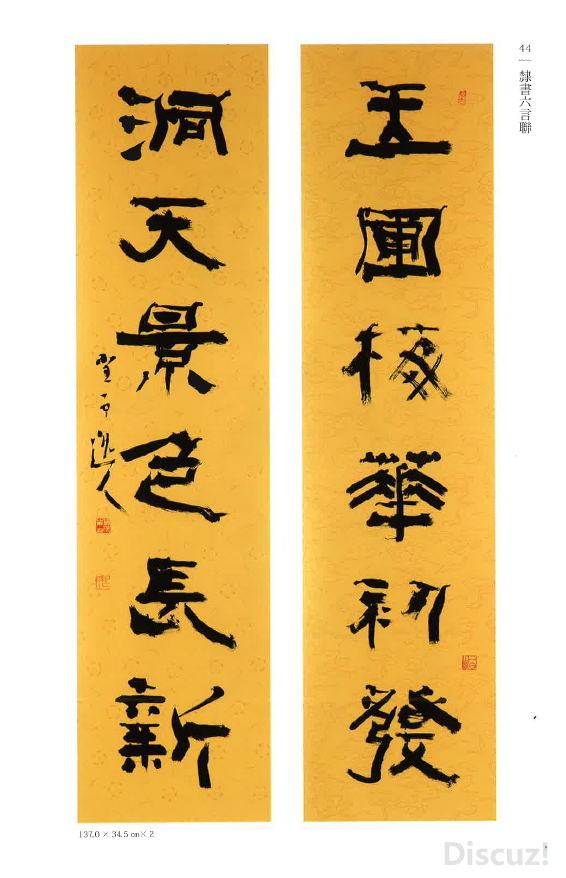 44 — 隸書六言聯
玉梅華初發
洞天景色長新
逸人
137.0 × 34.5 cm × 2
Discuz!